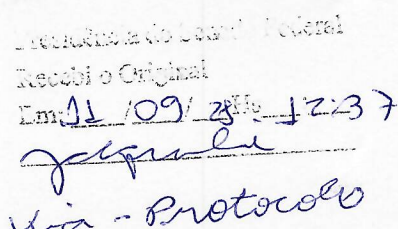 Presidência do Senado Federal
Recebi o Original
Em: 11 / 09 / Hs 12:37
- Protocolo